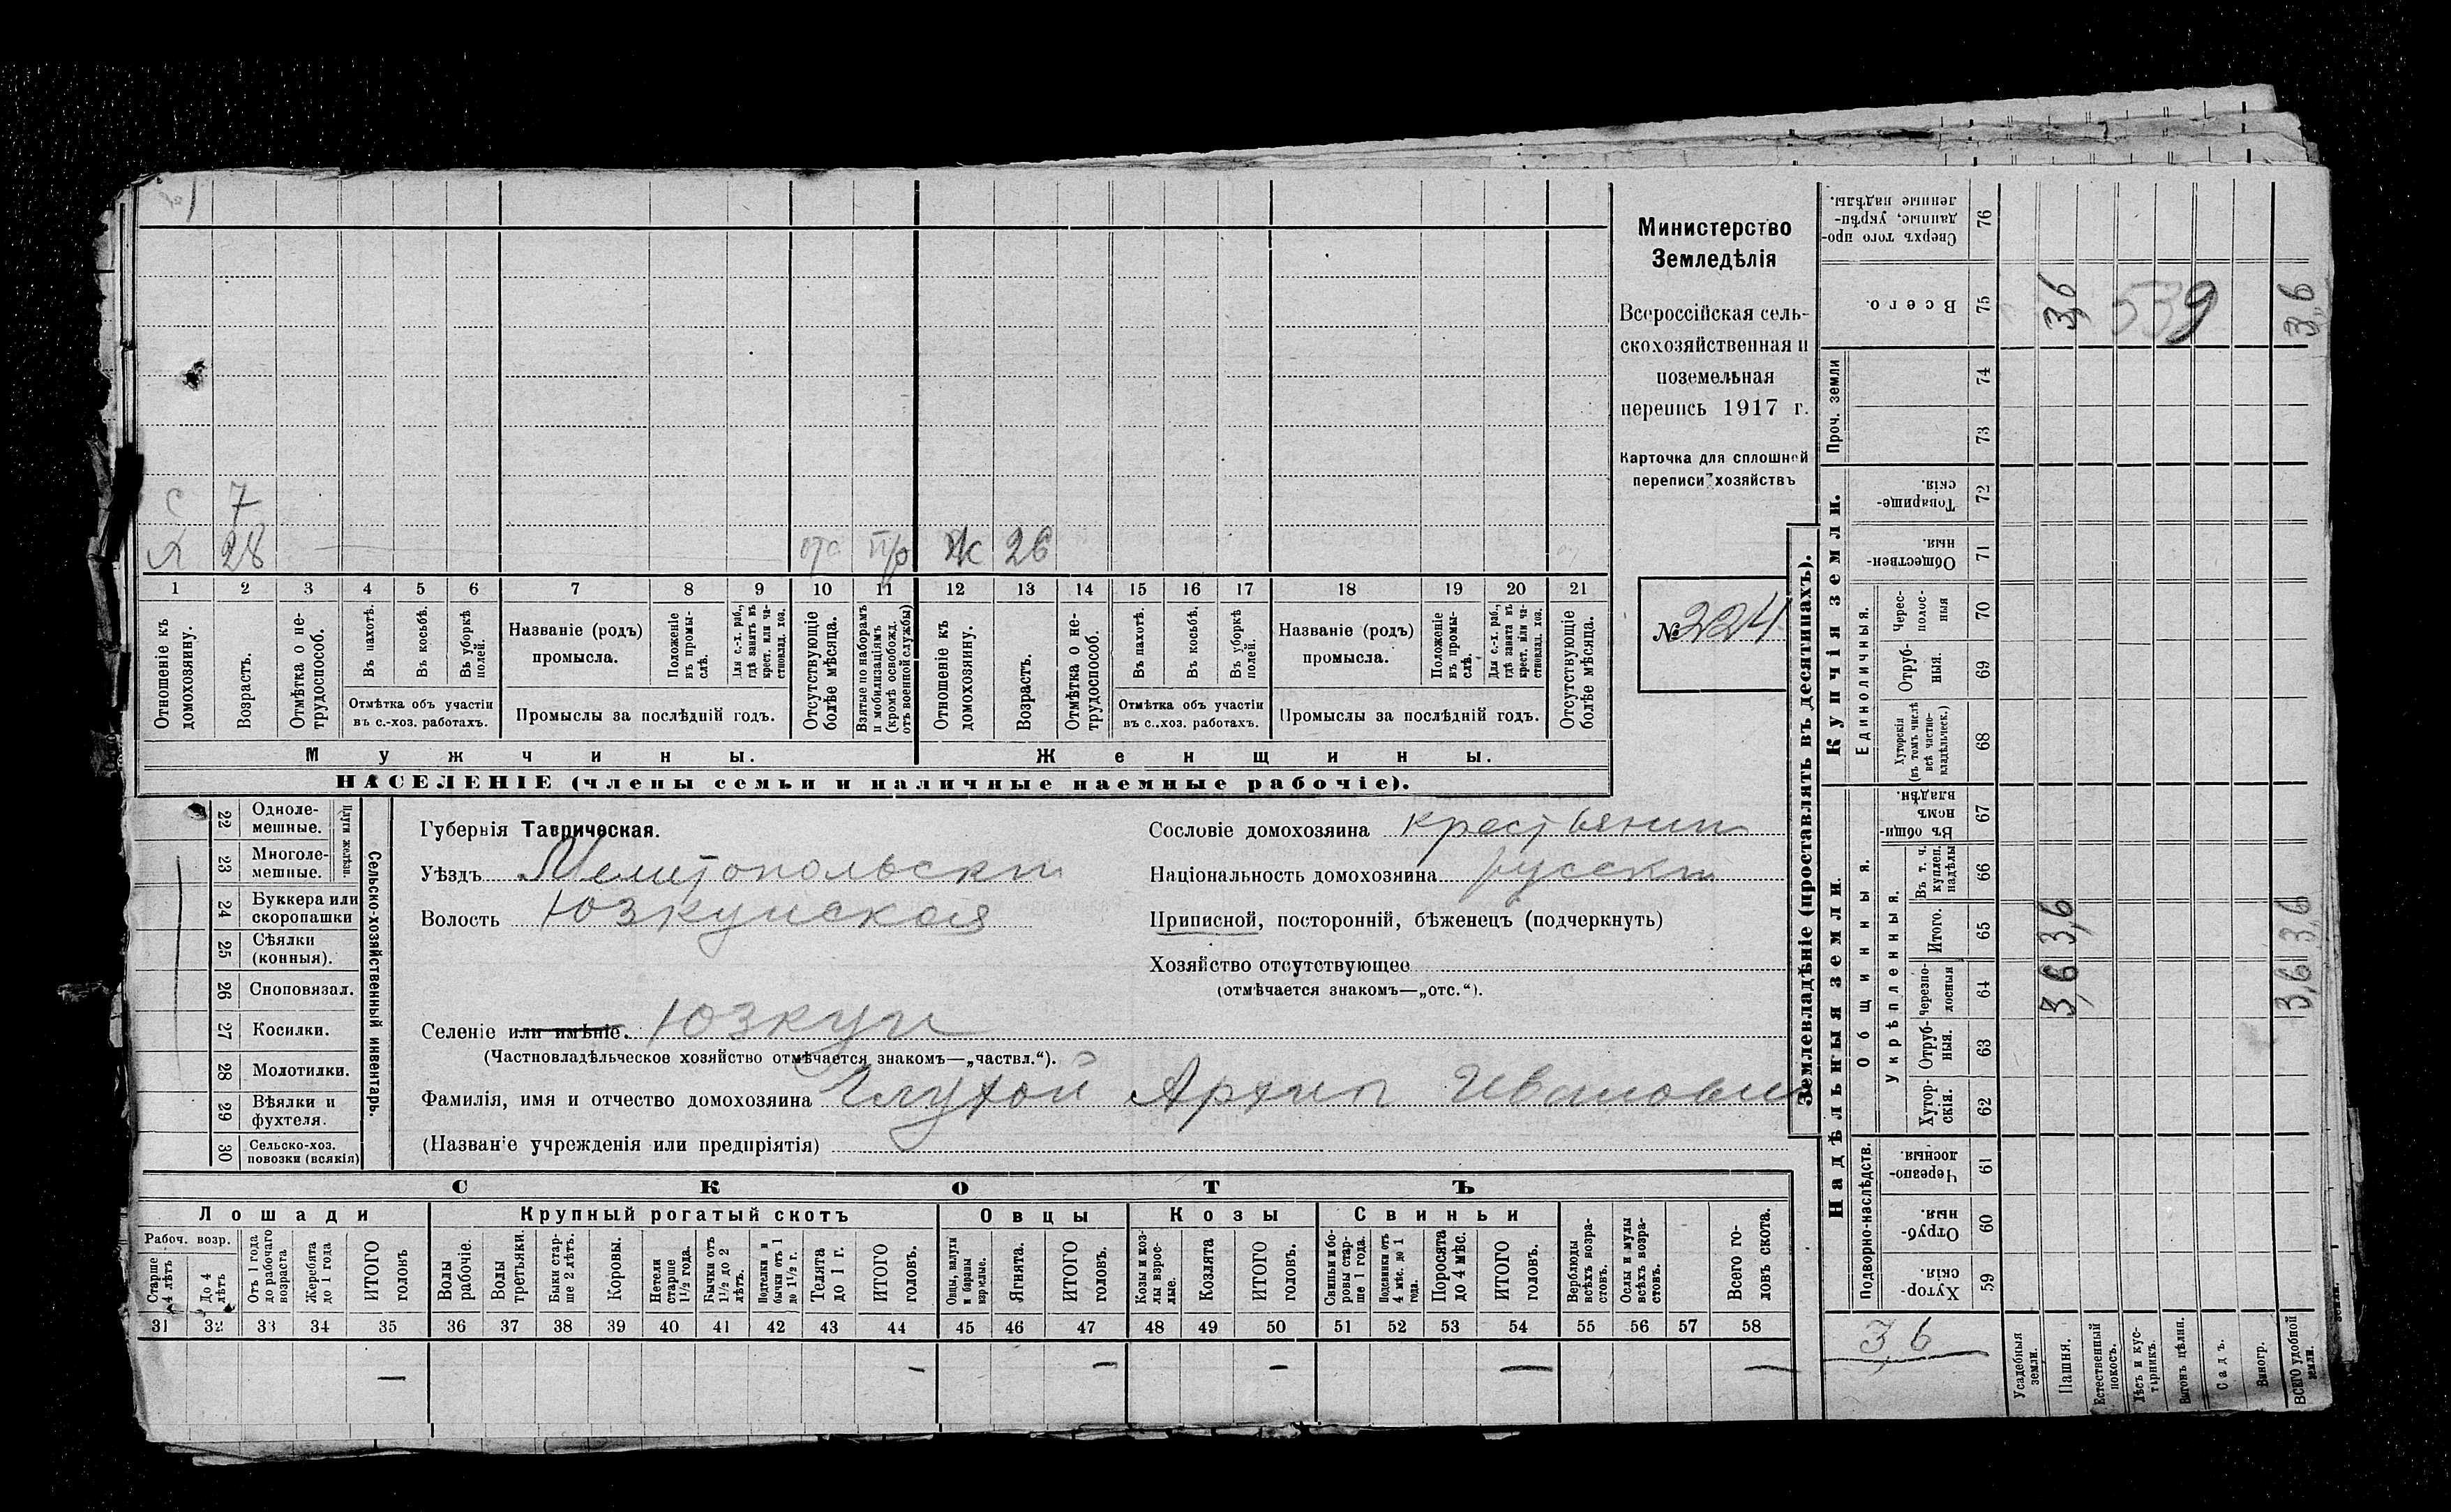 С 7
Я 28 отс пр Ж 26
1 2 3 4 5 6 7 8 9 10 11 12 13 14 15 16 17 18 19 20 21
Отношеніе къ домохозяину.
Возрастъ.
Отмѣтка о нетрудоспособ.
Въ пахотѣ.
Въ косьбѣ.
Въ уборкѣ полей.
Отмѣтка объ участіи
въ с.-хоз. работахъ.
Названіе (родъ)
промысла.
Положеніе въ промыслѣ.
Для с.-х. раб., гдѣ занятъ въ крест. или частновлад. хоз.
Промыслы за послѣдній годъ.
Отсутствующіе болѣе мѣсяца.
Взятые по наборамъ и мобилизаціямъ (кромѣ освобожд. отъ военной службы)
Отношеніе къ домохозяину.
Возрастъ.
Отмѣтка о нетрудоспособ.
Въ пахотѣ.
Въ косьбѣ.
Въ уборкѣ полей.
Отмѣтка объ участіи
въ с..хоз. работахъ.
Названіе (родъ)
промысла.
Положеніе въ промыслѣ.
Для с.-х. раб., гдѣ занята въ крест. или частновлад. хоз.
Промыслы за послѣдній годъ.
Отсутствующіе болѣе мѣсяца.
Мужчины. Женщины.
НАСЕЛЕНІЕ (члены семьи и наличные наемные рабочіе).
Министерство
Земледѣлія
Всероссійская сель-
скохозяйственная и
поземельная
перепись 1917 г.
Карточка для сплошной
переписи хозяйствъ
№ 324
22 Одноле-
мешные.
23 Многоле-
мешные.
Плуги желѣзн.
24 Буккера или
скоропашки
25 Сѣялки
(конныя).
26 Сноповязал.
27 Косилки.
28 Молотилки.
29 Вѣялки и
фухтеля.
30 Сельско-хоз.
повозки (всякія)
Сельско-хозяйственный инвентарь.
Губернія Таврическая.
Уѣздъ Мелитопольски
Волость Юзкуиская
Селеніе или имѣніе. Юзкуи
(Частновладѣльческое хозяйство отмѣчается знакомъ—„частвл.“).
Фамилія, имя и отчество домохозяина Глухой Архип Иванови
(Названіе учрежденія или предпріятія)
Сословіе домохозяина крестьянин
Національность домохозяина русски
Приписной, посторонній, бѣженецъ (подчеркнуть)
Хозяйство отсутствующее
(отмѣчается знакомъ—„отс.“).
СКОТЪ
Лошади Крупный рогатый скотъ Овцы Козы Свиньи
Рабоч. возр.
Старше 4 лѣтъ
До 4 лѣтъ
Отъ 1 года до рабочаго возраста
Жеребята до 1 года
ИТОГО головъ
Волы рабочіе.
Волы третьяки.
Быки старше 2 лѣтъ.
Коровы.
Нетели старше 1½ года.
Бычки отъ 1½ до 2 лѣтъ.
Подтелки и бычки отъ 1 до 1½ г.
Телята до 1 г.
ИТОГО головъ.
Овцы, валухи и бараны взрослые.
Ягнята.
ИТОГО головъ.
Козы и козлы взрослые.
Козлята
ИТОГО головъ.
Свиньи и боровы старше 1 года.
Подсвинки отъ 4 мѣс. до 1 года.
Поросята до 4 мѣс.
ИТОГО головъ.
Верблюды всѣхъ возрастовъ.
Ослы и мулы всѣхъ возрастовъ.
Всего головъ скота.
31 32 33 34 35 36 37 38 39 40 41 42 43 44 45 46 47 48 49 50 51 52 53 54 55 56 57 58
— — — — — —
Землевладѣніе (проставлять въ десятинахъ).
Надѣльныя земли. Купчія земли. Проч. земли
Подворно-наслѣдств.
Общинныя.
Укрѣпленныя.
Единоличныя.
Хуторскія. 59
Отрубныя. 60
Черезполосныя. 61
Хуторскія. 62
Отрубныя. 63
Черезполосныя 64
Итого. 65
Въ т. ч. куплен. надѣлы 66
Въ общинномъ владѣн. 67
Хуторскія (въ томъ числѣ всѣ частновладѣльческ.) 68
Отрубныя. 69
Чересполосныя 70
Общественныя. 71
Товарищескія. 72
73
74
Всего. 75
Сверхъ того проданные, укрѣпленные надѣлы. 76
3,6
Усадебныя земли.
Пашня. 3,6 3,6 3,6
Естественный покосъ.
Лѣсъ и кустарникъ.
Выгонъ цѣлин.
Садъ.
Виногр.
ВСЕГО удобной земли. 3,6 3,6 3,6
539